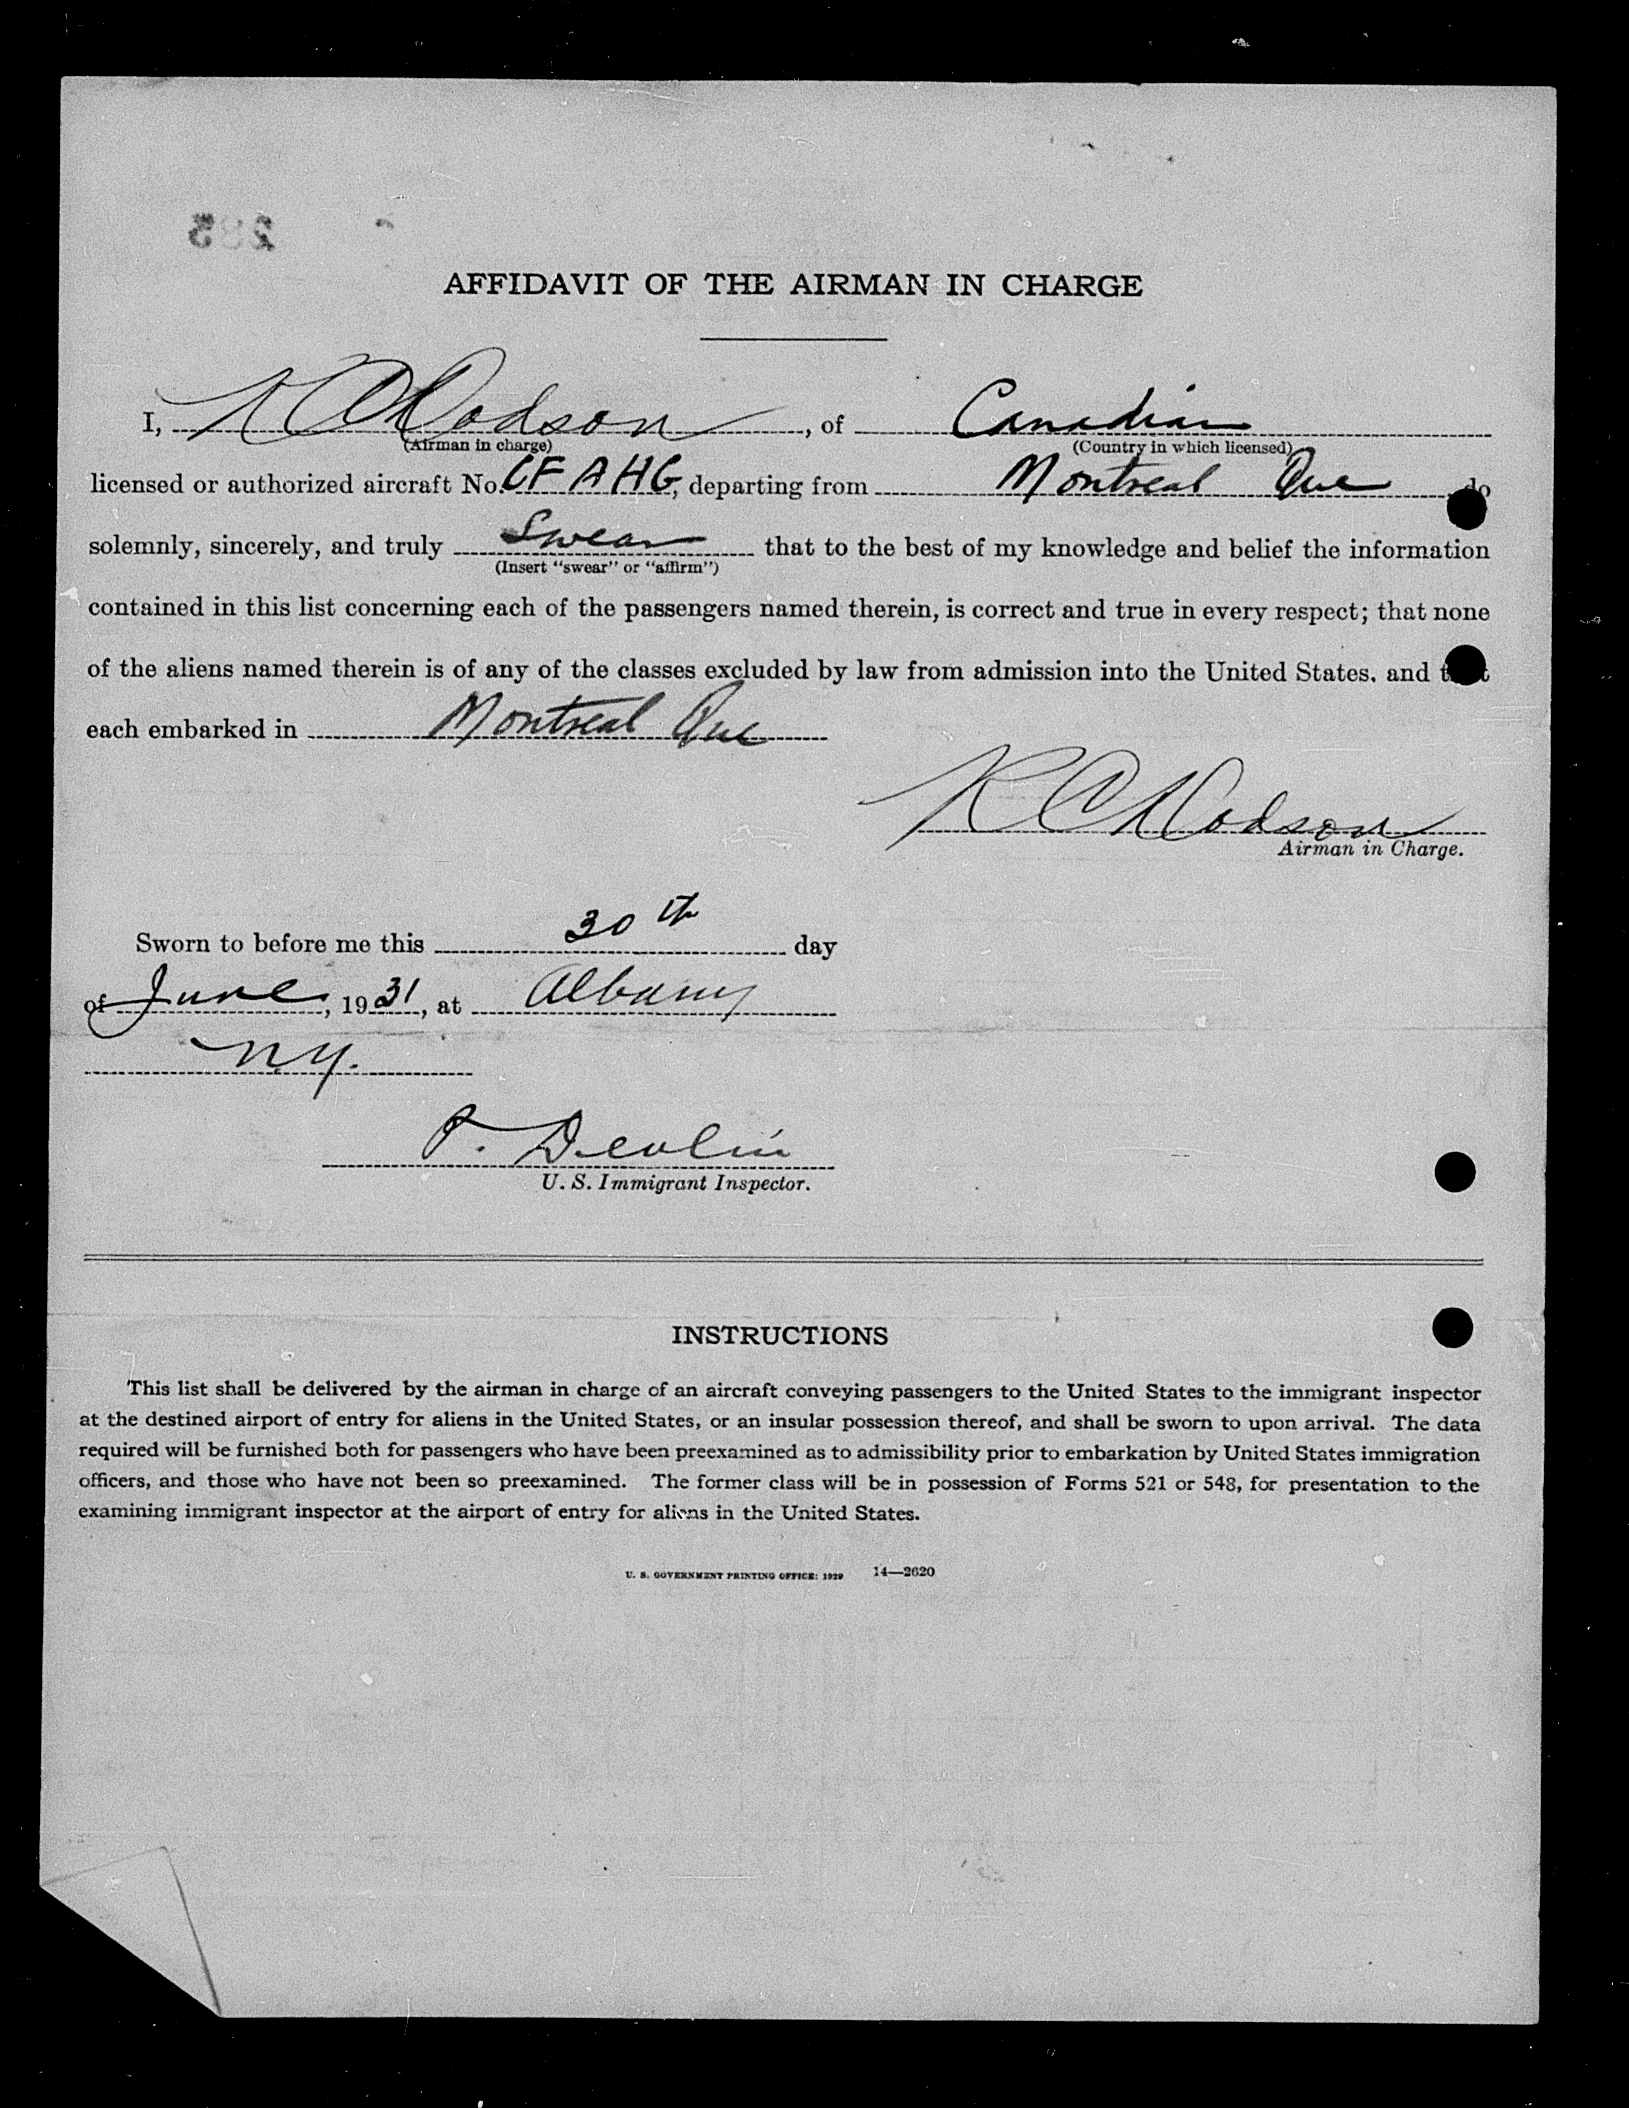 AFFIDAVIT OF THE AIRMAN IN CHARGE
I, , of Canadian
(Airman in charge) (Country in which licensed)
licensed or authorized aircraft No. CF AHG, departing from Montreal Que, do
solemnly, sincerely, and truly Swear that to the best of my knowledge and belief the information
(Insert "swear" or "affirm")
contained in this list concerning each of the passengers named therein, is correct and true in every respect; that none
of the aliens named therein is of any of the classes excluded by law from admission into the United States, and that
each embarked in Montreal Que
R C
Airman in Charge.
30th
Sworn to before me this day
of June, 1931, at Albany
N.Y.
P. Devlin
U. S. Immigrant Inspector.
INSTRUCTIONS
This list shall be delivered by the airman in charge of an aircraft conveying passengers to the United States to the immigrant inspector
at the destined airport of entry for aliens in the United States, or an insular possession thereof, and shall be sworn to upon arrival. The data
required will be furnished both for passengers who have been preexamined as to admissibility prior to embarkation by United States immigration
officers, and those who have not been so preexamined. The former class will be in possession of Forms 521 or 548, for presentation to the
examining immigrant inspector at the airport of entry for aliens in the United States.
U. S. GOVERNMENT PRINTING OFFICE: 1929 14—2620